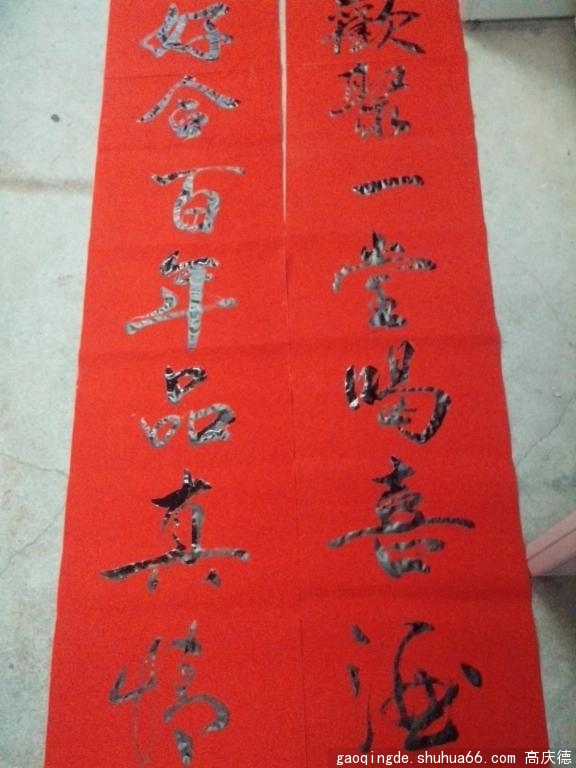 歡聚一堂喝喜酒
好合百年品真情
gaoqingde.shuhua66.com 高庆德